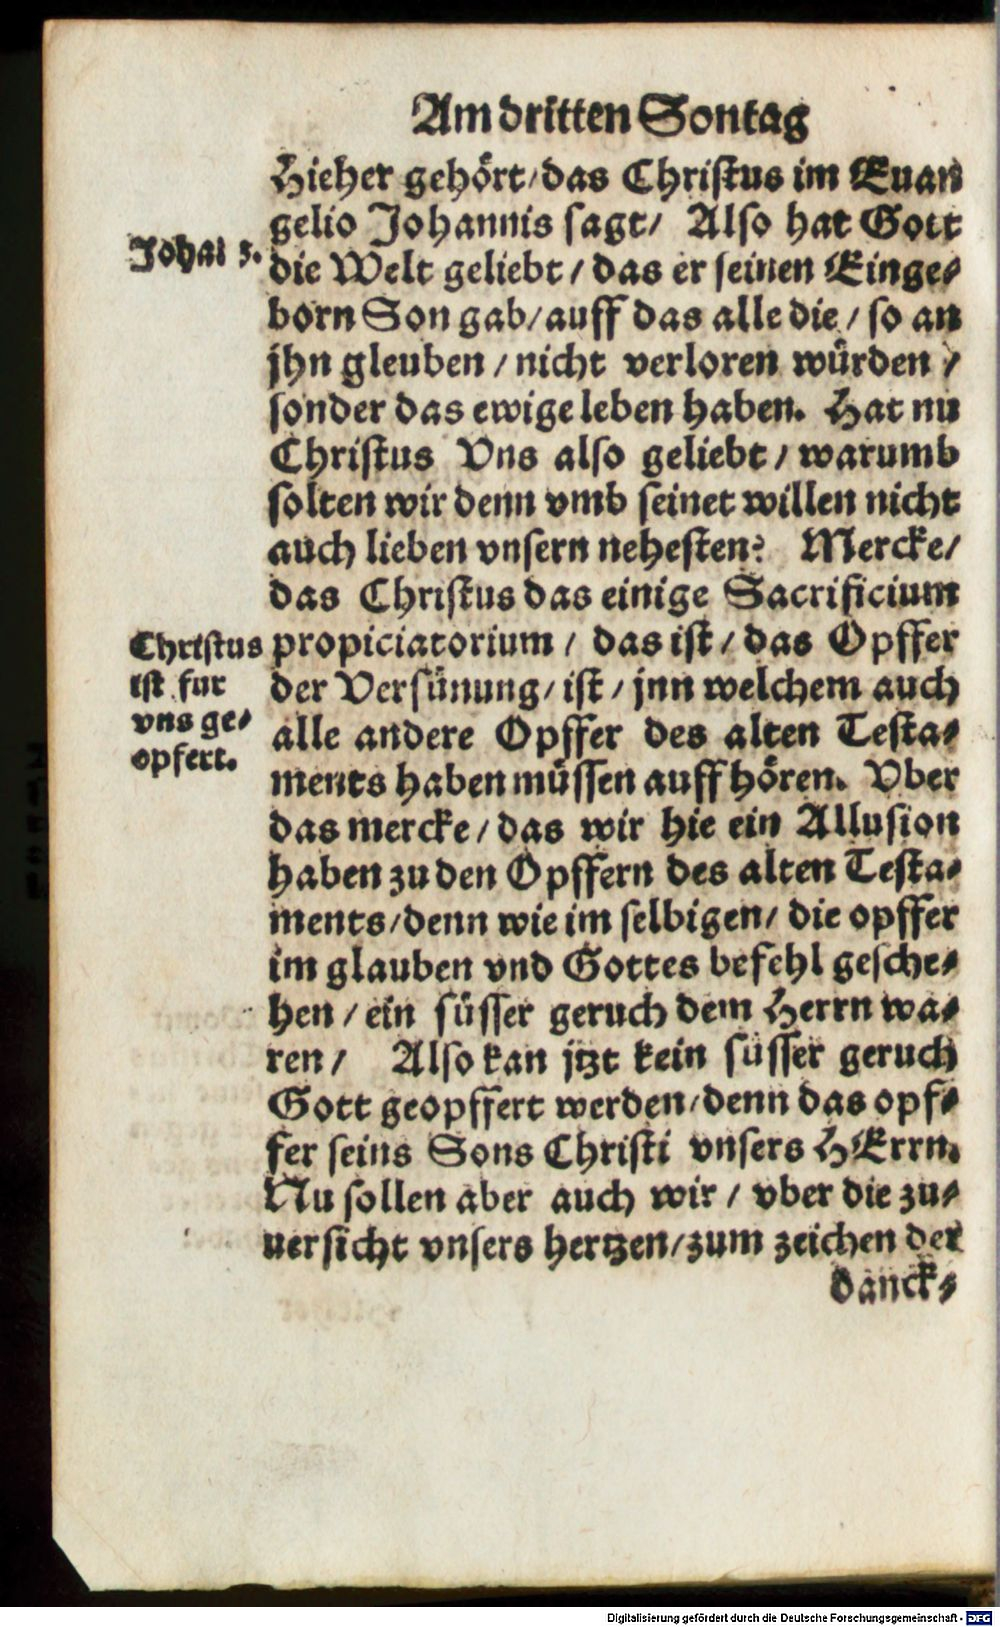 Am dritten Sontag
Hieher gehört/das Christus im Euan
gelio Johannis sagt/ Also hat Gott
Johan 3.
die Welt geliebt/das er seinen Einge-
born Son gab/auff das alle die/so an
jhn gleuben/nicht verloren würden/
sonder das ewige leben haben. Hat nu
Christus Vns also geliebt/warumb
solten wir denn vmb seinet willen nicht
auch lieben vnsern nehesten? Mercke/
das Christus das einige Sacrificium
propiciatorium/das ist/das Opffer
der Versünung/ist/jnn welchem auch
alle andere Opffer des alten Testa-
ments haben müssen auff hören. Vber
das mercke/das wir hie ein Allusion
haben zu den Opffern des alten Testa-
ments/denn wie im selbigen/die opffer
im glauben vnd Gottes befehl gesche-
hen/ein süsser geruch dem Herrn wa-
ren/ Also kan jtzt kein süsser geruch
Gott geopffert werden/denn das opf-
fer seins Sons Christi vnsers HErrn.
Nu sollen aber auch wir/vber die zu-
uersicht vnsers hertzen/zum zeichen der
danck-
Christus
ist fur
vns ge-
opfert.
Digitalisierung gefördert durch die Deutsche Forschungsgemeinschaft - DFG